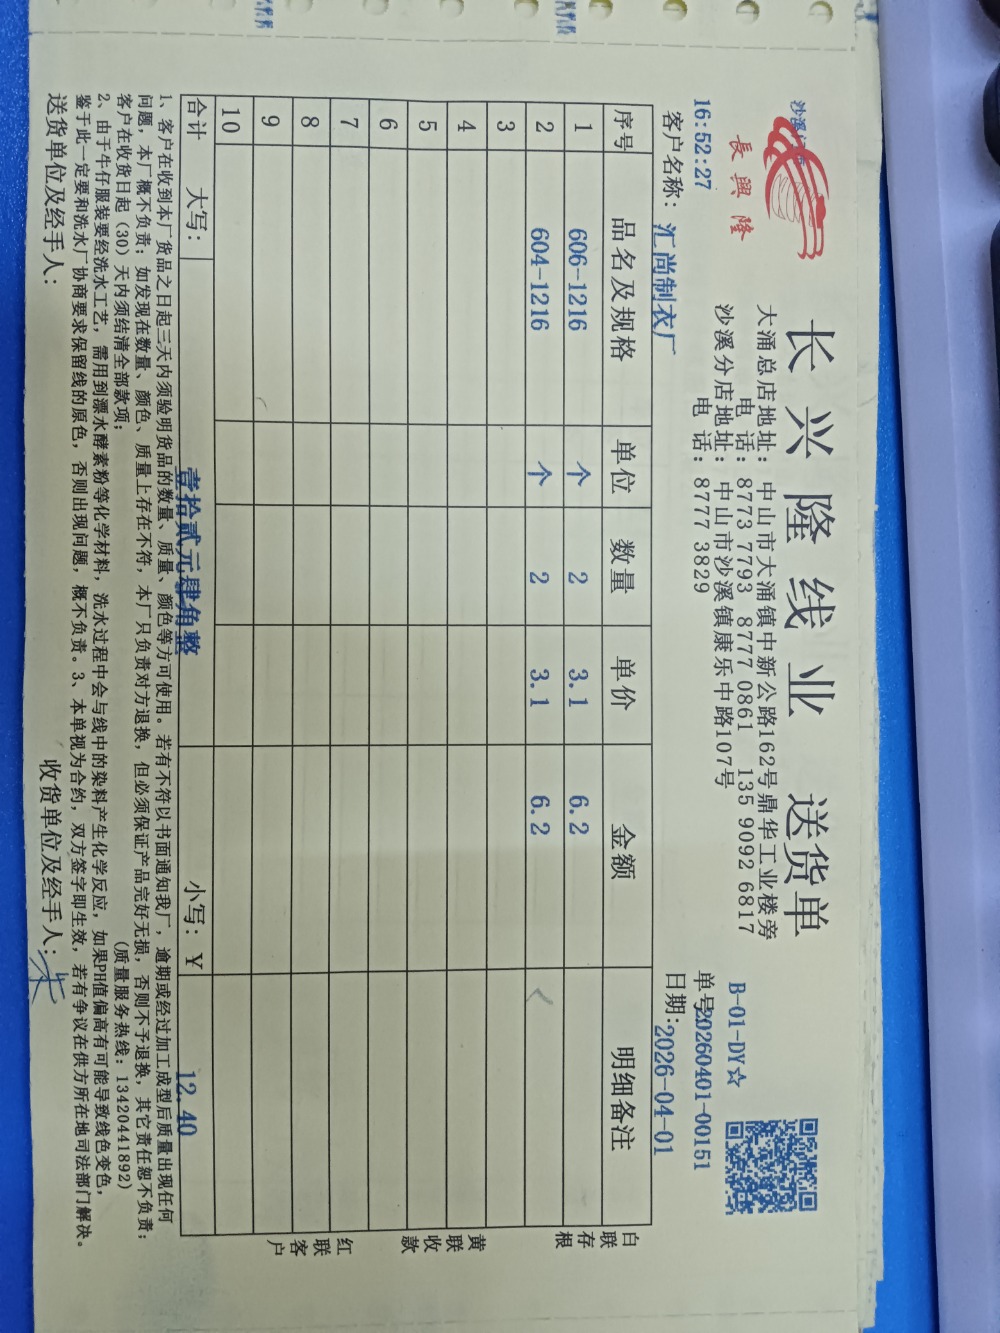 沙溪
長興隆
长兴隆线业 送货单
大涌总店地址：中山市大涌镇中新公路162号鼎华工业楼旁
电 话：8773 7793 8777 0861 135 9092 6817
沙溪分店地址：中山市沙溪镇康乐中路107号
电 话：8777 3829
B-01-DY☆
16:52:27
单号:20260401-00151
客户名称：汇尚制衣厂
日期:2026-04-01
序号 品名及规格 单位 数量 单价 金额 明细备注
1 606-1216 个 2 3.1 6.2
2 604-1216 个 2 3.1 6.2
3
4
5
6
7
8
9
10
合计 大写： 壹拾贰元肆角整 小写：￥ 12.40
白联存根
黄联收款
红联客户
1、客户在收到本厂货品之日起三天内须验明货品的数量、质量、颜色等方可使用。若有不符以书面通知我厂，逾期或经过加工成型后质量出现任何
问题，本厂概不负责；如发现在数量、颜色、质量上存在不符，本厂只负责对方退换，但必须保证产品完好无损，否则不予退换，其它责任恕不负责；
客户在收货日起（30）天内须结清全部款项； （质量服务热线：13420441892）
2、由于牛仔服装要经洗水工艺，需用到漂水酵素粉等化学材料，洗水过程中会与线中的染料产生化学反应，如果PH值偏高有可能导致线色变色，
鉴于此一定要和洗水厂协商要求保留线的原色，否则出现问题，概不负责。3、本单视为合约，双方签字即生效，若有争议在供方所在地司法部门解决。
送货单位及经手人： 收货单位及经手人：